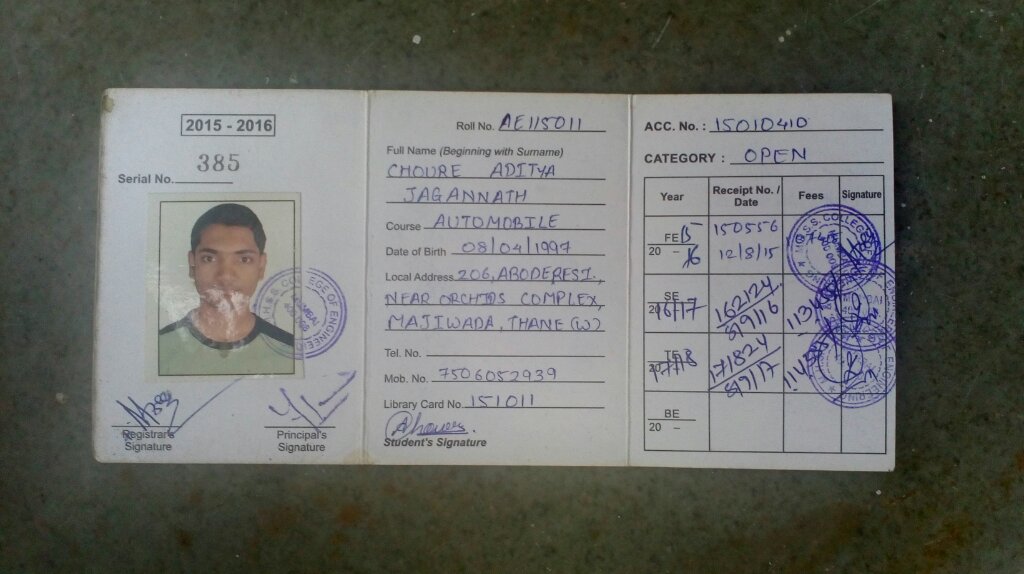 2015 - 2016
385
Serial No.
Registrar's
Signature
Principal's
Signature
Roll No. AE115011
Full Name (Beginning with Surname)
CHOURE ADITYA
JAGANNATH
Course AUTOMOBILE
Date of Birth 08/04/1997
Local Address 206, ABODERESI.
NEAR ORCHIDS COMPLEX,
MAJIWADA, THANE (W)
Tel. No.
Mob. No. 7506052939
Library Card No. 151011
Student's Signature
ACC. No. : 15010410
CATEGORY : OPEN
Year Receipt No. / Date Fees Signature
FE 150556
20 – 12/8/15
SE 162124
16/17
TE 171824
17/18
BE
20 –